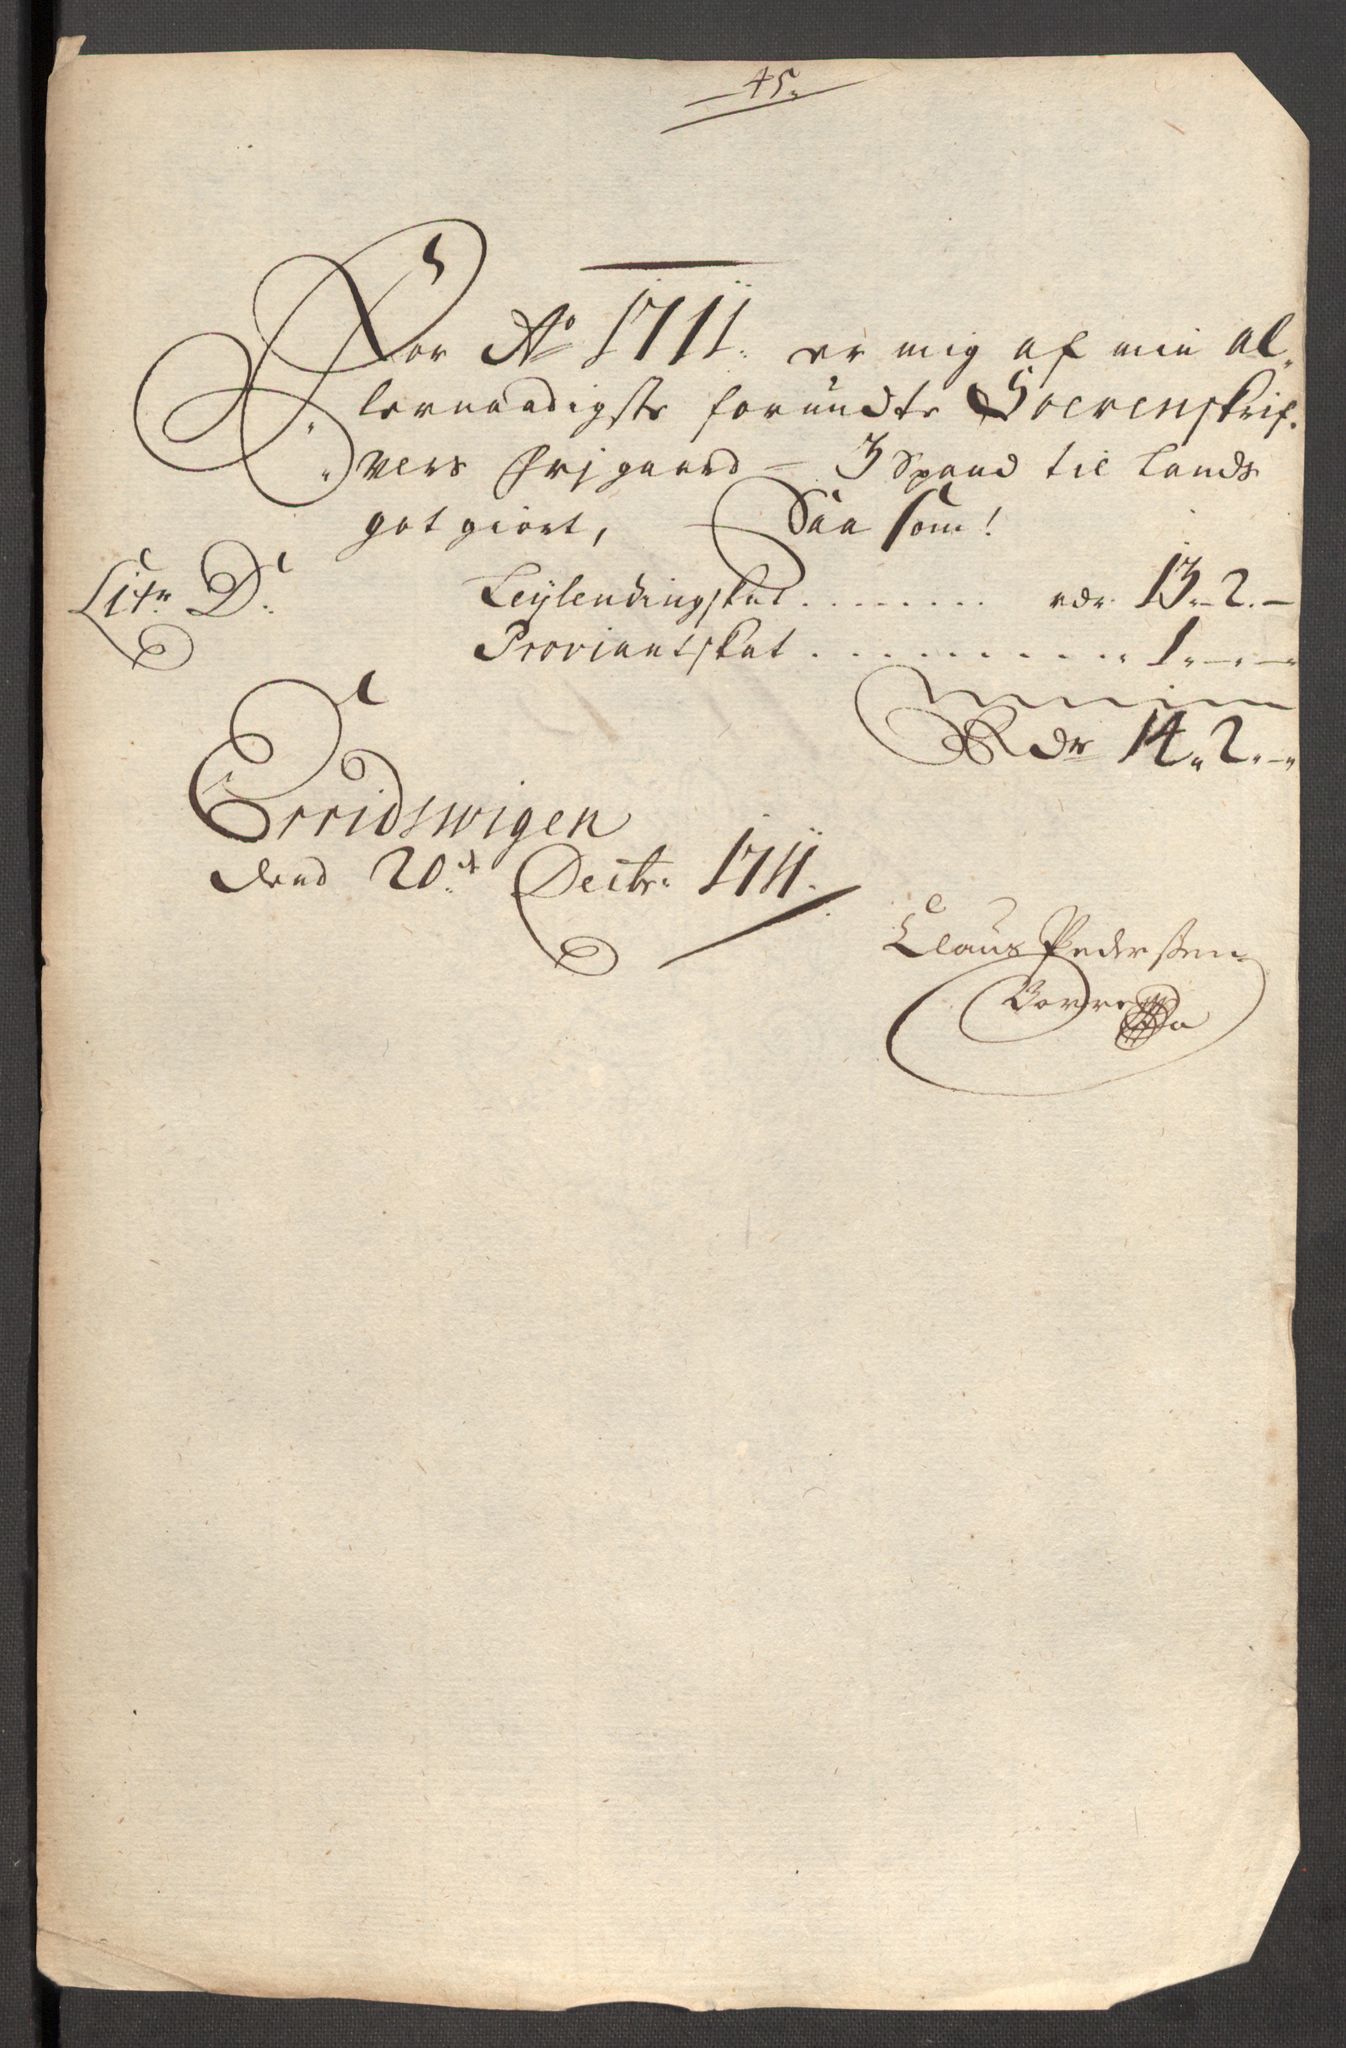 45.
For Ao 1711. er mig af min al-
lernaadigste forundte Soerenskrif-
vers frj gaard - 3 Spand til Lands
got giort, Saa Som!
Litr D. Leylendingskat ........ rdr 13.-2.-
Proviantskat .......... 1.-.-
Rdr 14.2.-
Erridswigen
dend 20de Decbr. 1711.
Claus Pederssen